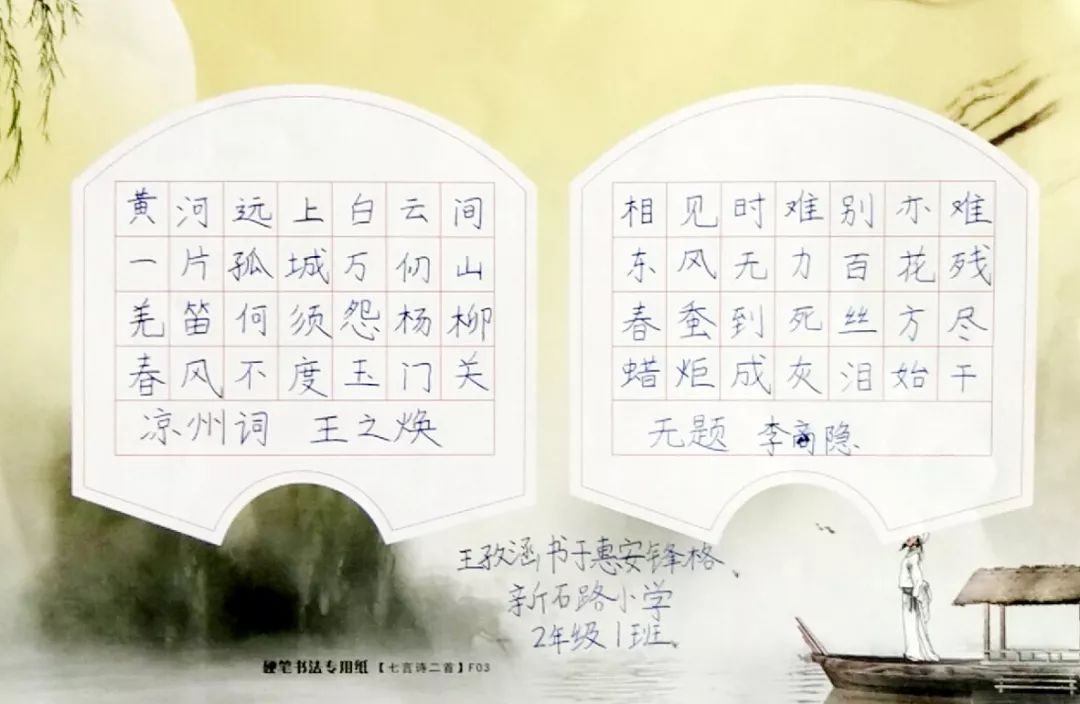 黄河远上白云间
一片孤城万仞山
羌笛何须怨杨柳
春风不度玉门关
凉州词 王之焕
相见时难别亦难
东风无力百花残
春蚕到死丝方尽
蜡炬成灰泪始干
无题 李商隐
王孜涵书于惠安锋格、
新石路小学
2年级1班、
硬笔书法专用纸【七言诗二首】F03